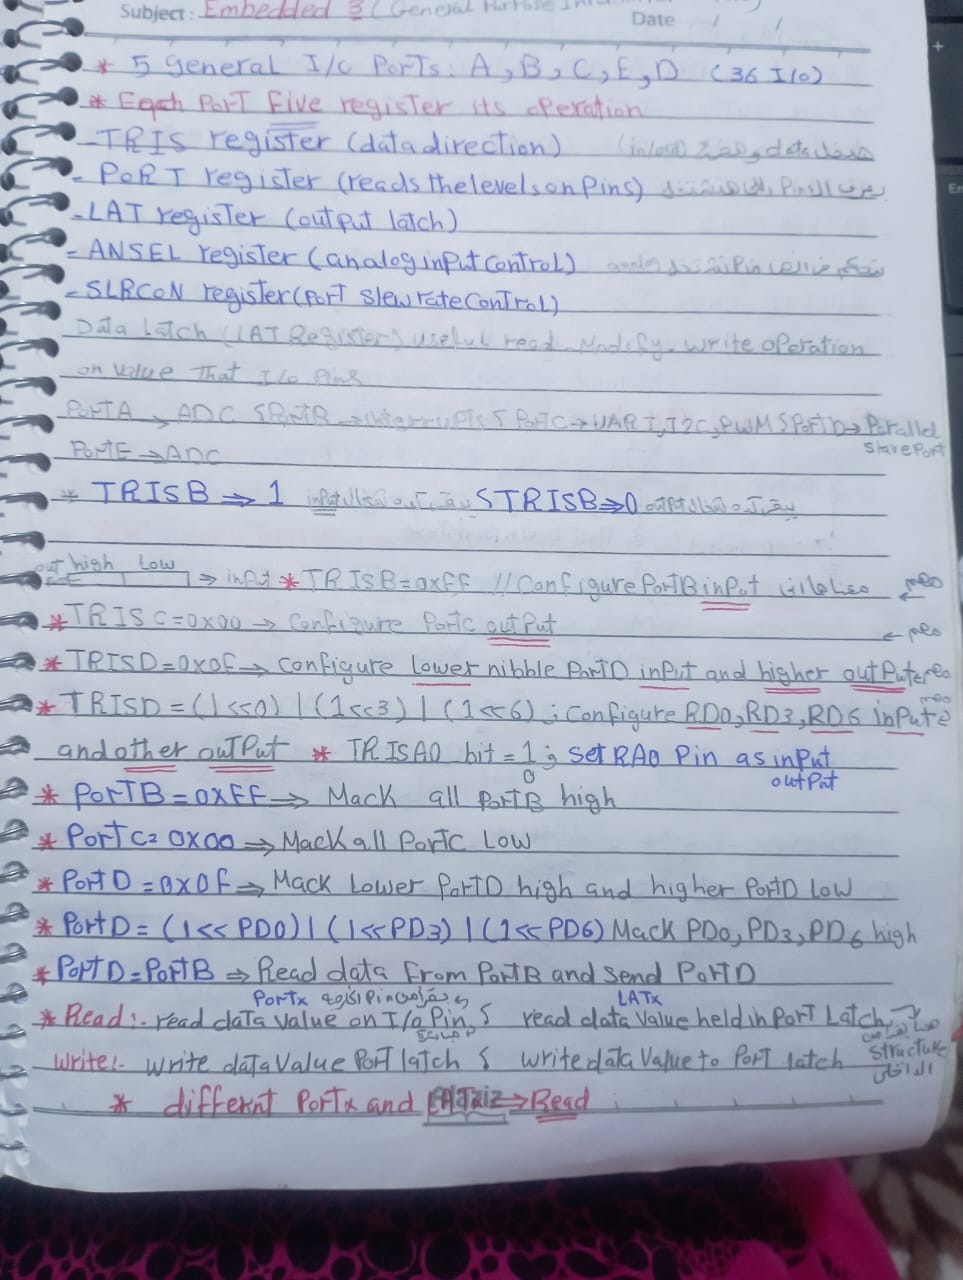 Subject: Embedded 3 (General Purpose
Date / /
* 5 general I/o Ports: A, B, C, E, D (36 I/o)
* Each Port Five register its operation
- TRIS register (data direction) (in/out) data
- PORT register (reads the levels on Pins)
- LAT register (output latch)
- ANSEL register (analog input control) analog
- SLRCON register (Port slew rate Control)
Data Latch (LAT Register) useful read - Modify - write operation
on value That I/o Pins
Port A → ADC ⟨ PortB → interrupts ⟨ PortC → UART, I2C, PWM ⟨ PortD → Parallel
Slave Port
PortE → ADC
* TRISB → 1 input ⟨ TRISB ⇒ 0 output
out high Low
⇒ input * TRISB = 0xFF // Configure PortB input
* TRISC = 0x00 → Configure PortC output
* TRISD = 0x0F → configure lower nibble PortD input and higher output
* TRISD = (1<<0) | (1<<3) | (1<<6) ; Configure RD0, RD3, RD6 input
and other output * TRISA0 bit = 1 ; set RA0 Pin as input
0 output
* PortB = 0xFF ⇒ Mack all PortB high
* Port C = 0x00 ⇒ Mack all PortC Low
* Port D = 0x0F ⇒ Mack Lower PortD high and higher PortD Low
* Port D = (1<<PD0) | (1<<PD3) | (1<<PD6) Mack PD0, PD3, PD6 high
* Port D = PortB ⇒ Read data From PortB and send PortD
Portx LATx
* Read :- read data value on I/o Pin, ⟨ read data Value held in Port Latch,
Write:- write data Value Port latch ⟨ write data Value to Port latch structure
* differnt Portx and ⇒ Read